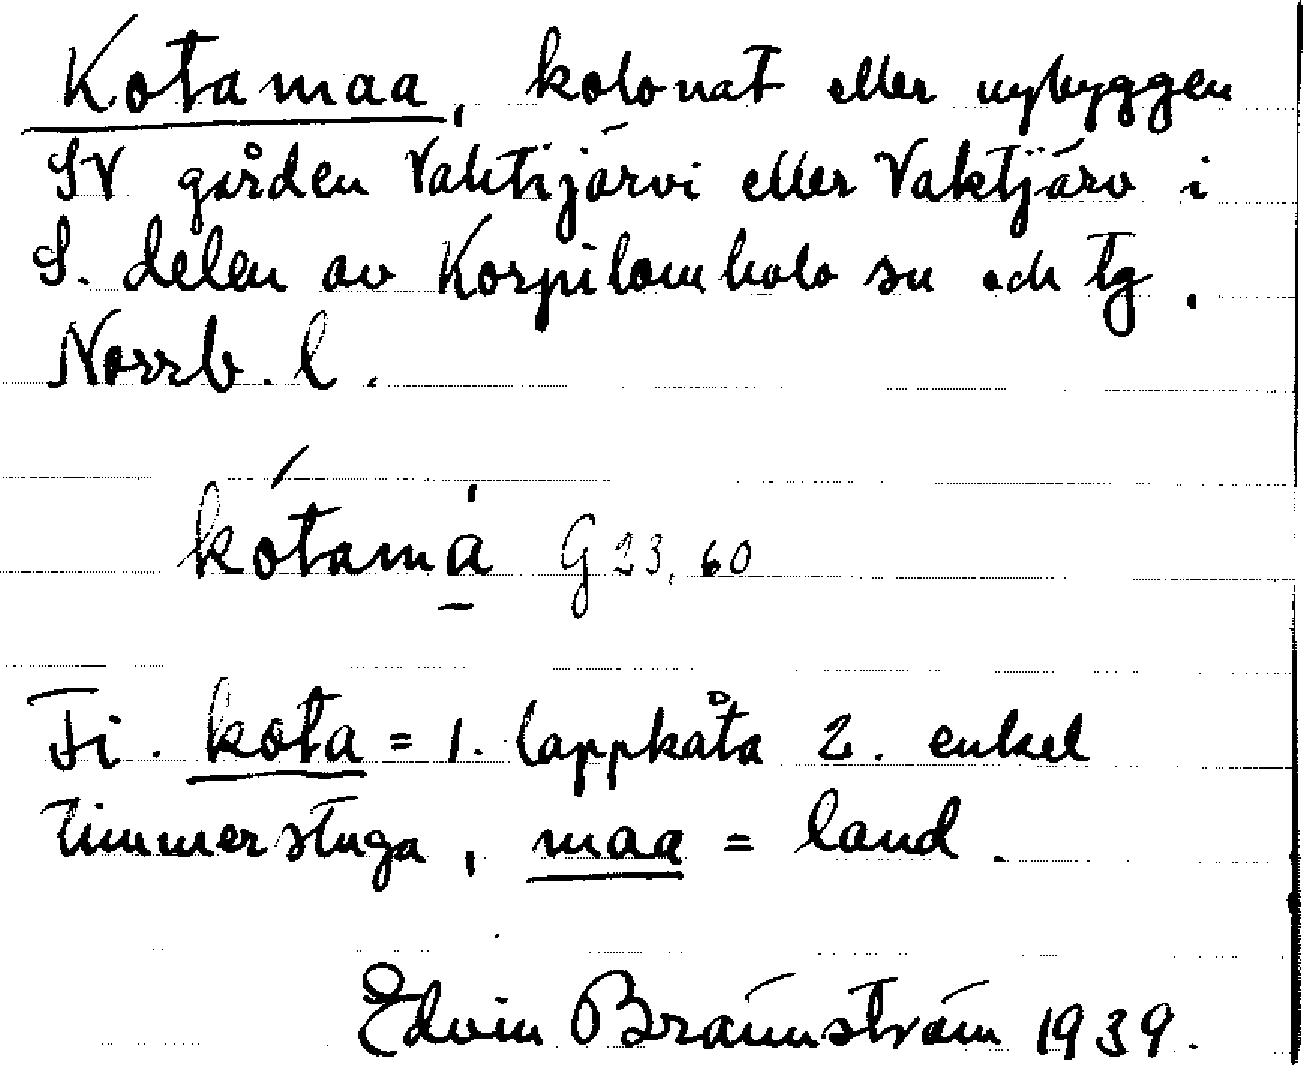 Kotamaa, kolonat eller nybyggen
SV gården Vahtijärvi eller Vaktjärv i
S. delen av Korpilombolo sn och tg.
Norrb. l.
kótamà̱ G 23, 60
Fi. kota = 1. lappkåta 2. enkel
timmerstuga, maa = land.
Edvin Brännström 1939.